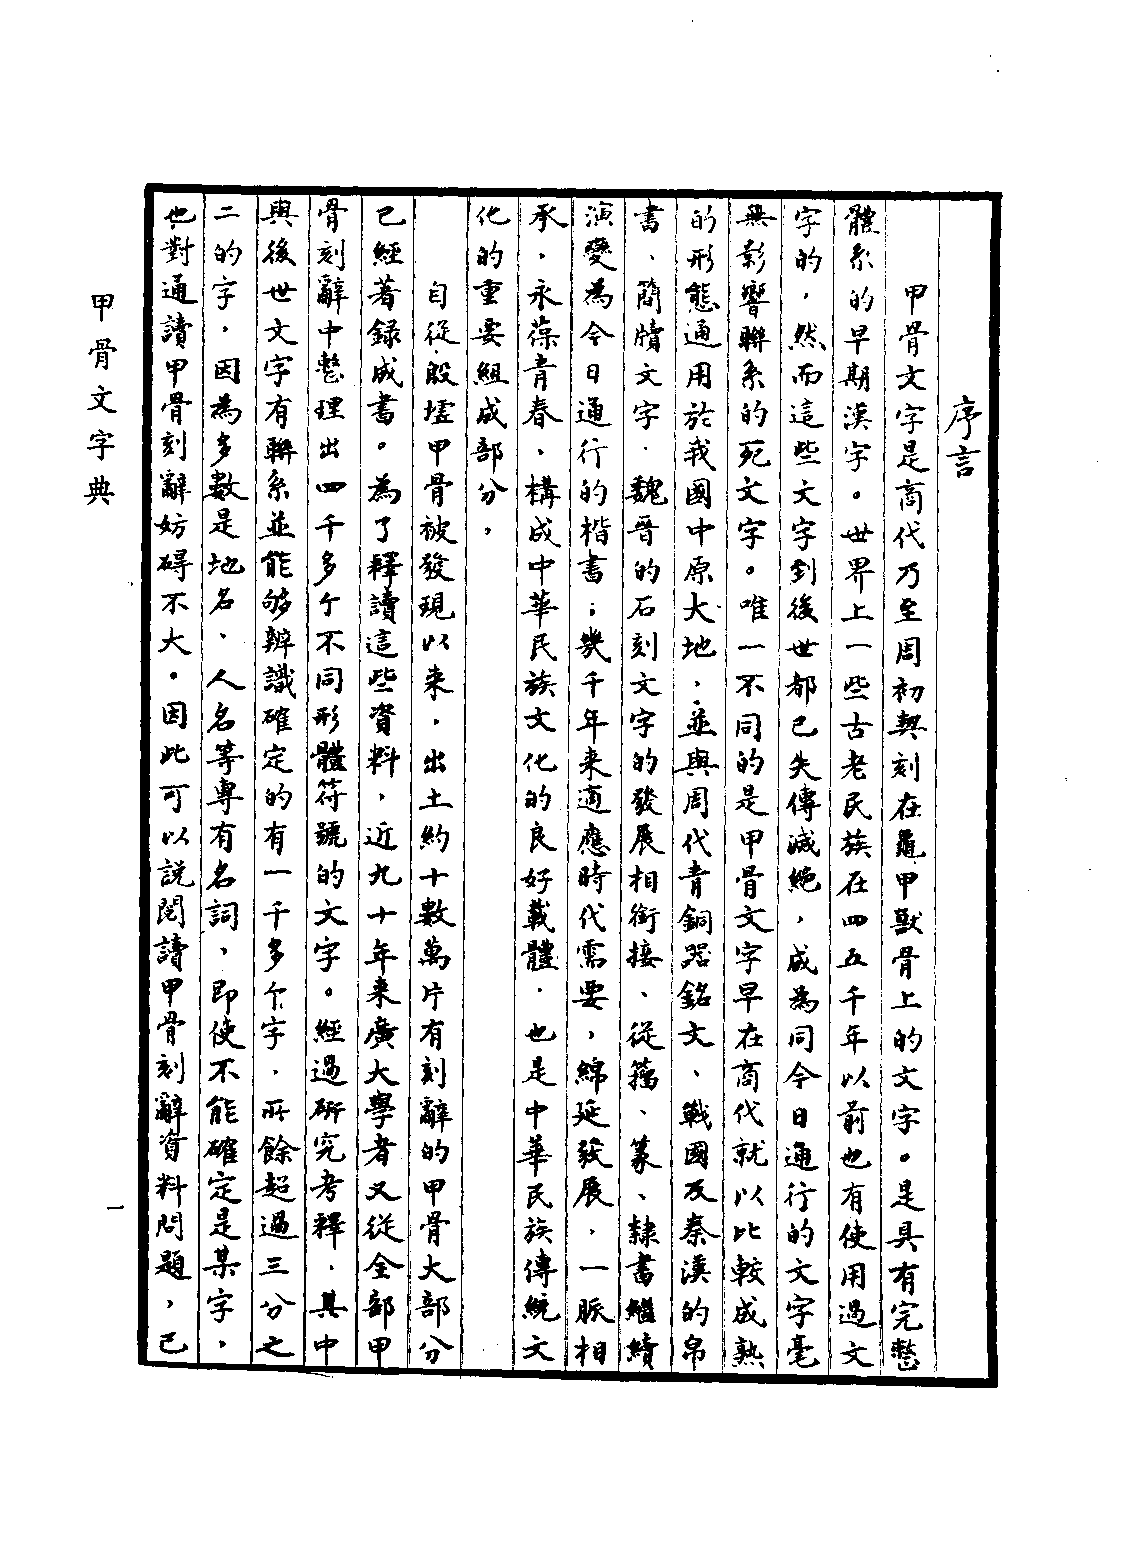 序言
甲骨文字是商代乃至周初契刻在龜甲獸骨上的文字。是具有完整
體系的早期漢字。世界上一些古老民族在四五千年以前也有使用過文
字的，然而這些文字到後世都已失傳滅絕，成為同今日通行的文字毫
無影響聯系的死文字。唯一不同的是甲骨文字早在商代就以比較成熟
的形態通用於我國中原大地，並與周代青銅器銘文、戰國及秦漢的帛
書、簡牘文字．魏晉的石刻文字的發展相銜接、從籀、篆、隸書繼續
演變為今日通行的楷書；幾千年来適應時代需要，綿延發展，一脈相
承，永葆青春、構成中華民族文化的良好載體．也是中華民族傳統文
化的重要組成部分，
自從殷墟甲骨被發現以来，出土約十數萬片有刻辭的甲骨大部分
已經著錄成書。為了釋讀這些資料，近九十年来廣大學者又從全部甲
骨刻辭中整理出四千多个不同形體符號的文字。經過研究考釋．其中
與後世文字有聯系並能够辨識確定的有一千多个字．所餘超過三分之
二的字，因為多數是地名、人名等專有名詞，即使不能確定是某字，
也對通讀甲骨刻辭妨碍不大。因此可以説閱讀甲骨刻辭資料問題，已
甲骨文字典
一